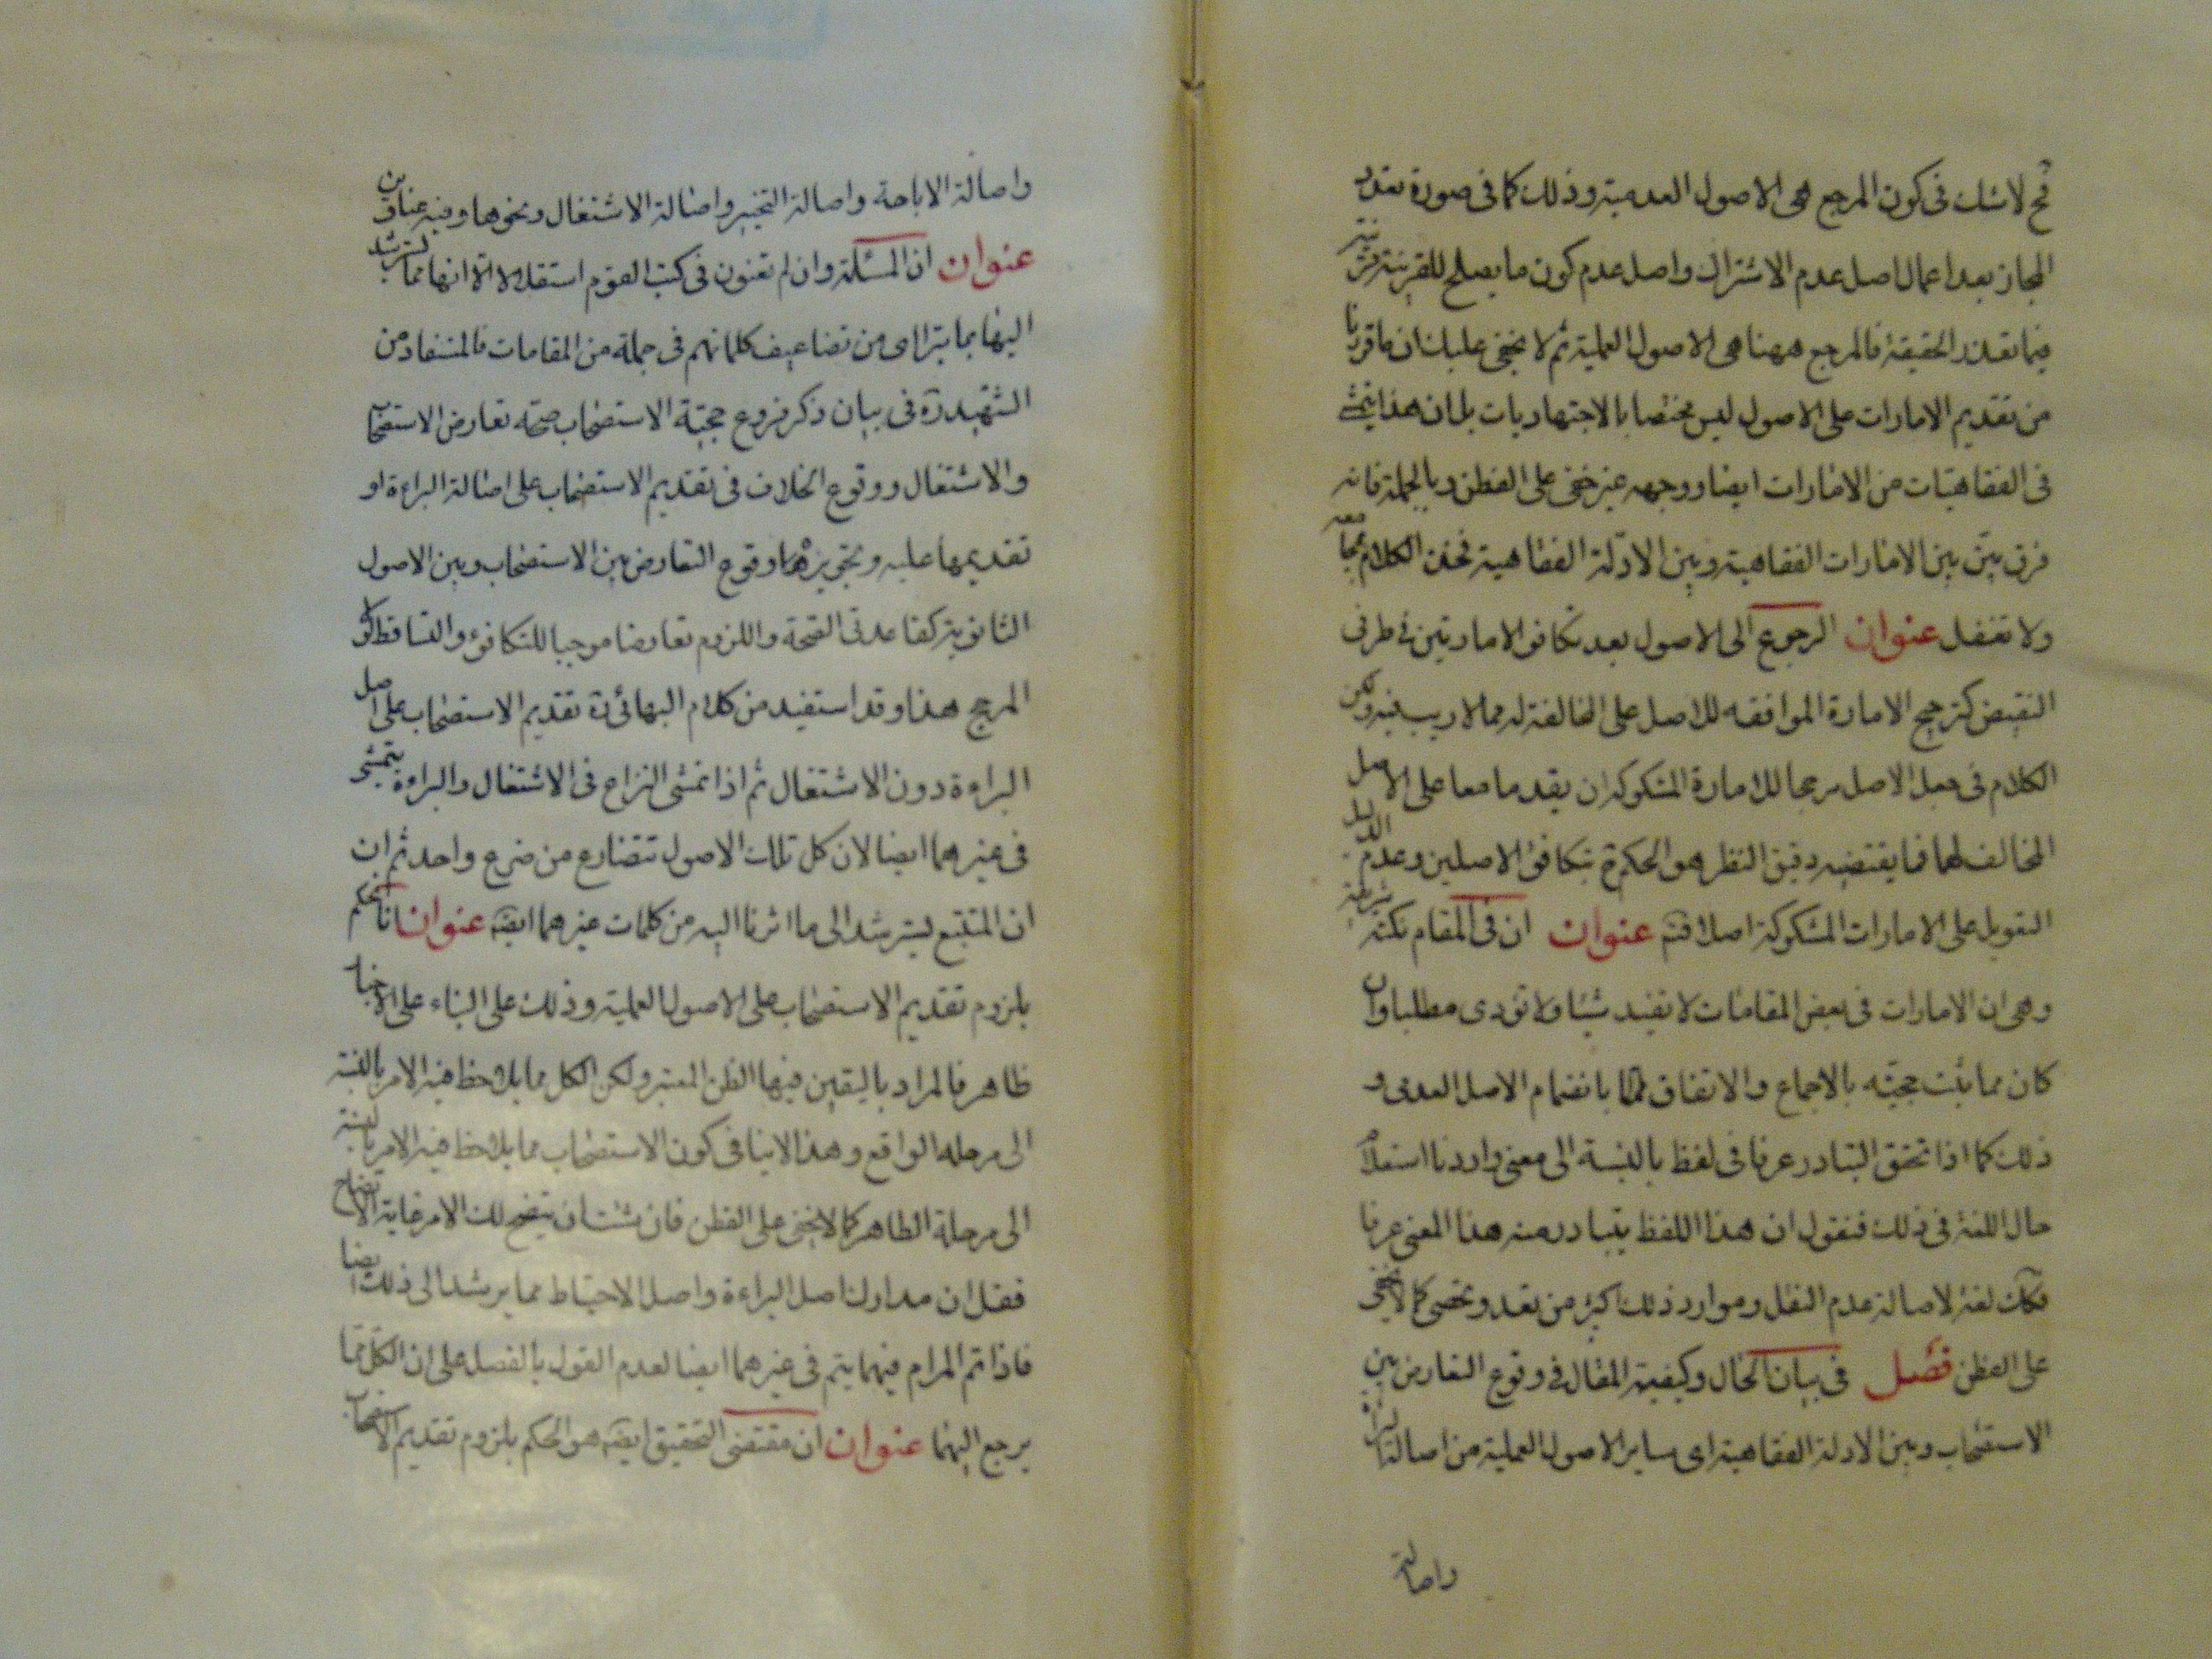 فح لا شك فى كون المرجع هى الاصول العدمية وذلك كما فى صورة تعدد
المجاز بعد اعمال اصل عدم الاشتراك واصل عدم كون ما يصلح للقرينة قرينة
فيما تعذر الحقيقة فالمرجع ههنا هى الاصول العملية ثم لا يخفى عليك ان ما قررنا
من تقديم الامارات على الاصول ليس مختصا بالاجتهاديات بل ان هذا يتمشى
فى الفقاهتيات من الامارات ايضا ووجهه غير خفى على الفطن وبالجملة فانه
فرق بيّن بين الامارات الفقاهية وبين الادلة الفقاهية فخذ الكلام بمجامعه
ولا تغفل عنوان الرجوع الى الاصول بعد تكافؤ الامارتين فى طرفى
النقيض كترجيح الامارة الموافقه للاصل على المخالفة له مما لا ريب فيه ولكن
الكلام فى جعل الاصل مرجحا للامارة المشكوكه ان يقدما معا على الاصل
المخالف لهما فما يقتضيه دقيق النظر هو الحكم بتكافؤ الاصلين وعدم الدليل
التعويل على الامارات المشكوكة اصلا فتم عنوان ان فى المقام نكتة شريفة
وهى ان الامارات فى بعض المقامات لا تفيد شيئا ولا تؤدى مطلبا وان
كان مما ثبت حجيته بالاجماع والاتفاق الا بانضمام الاصل العدمى و
ذلك كما اذا تحقق التبادر عرفا فى لفظ بالنسبة الى معنى واردنا استعلام
حال اللغة فى ذلك فنقول ان هذا اللفظ يتبادر منه هذا المعنى عرفا
فكك لغة لاصالة عدم النقل وموارد ذلك اكثر من تعد وتحصى كما لا يخفى
على الفطن فصل فى بيان الحال وكيفية المقال فى وقوع التعارض بين
الاستصحاب وبين الادلة الفقاهية اى ساير الاصول العملية من اصالة البراءة
واصالة
واصالة الاباحة واصالة التخيير واصالة الاشتغال ونحوها وفيه عناوين
عنوان ان المسئلة وان لم تعنون فى كتب القوم استقلالا الا انها مما يسترشد
اليها بما يترااى من تضاعيف كلماتهم فى جملة من المقامات فالمستفاد من
الشهيد ره فى بيان ذكر فروع حجية الاستصحاب صحة تعارض الاستصحاب
والاشتغال ووقوع الخلاف فى تقديم الاستصحاب على اصالة البراءة او
تقديمها عليه وتجويزهم وقوع التعارض بين الاستصحاب وبين الاصول
الثانوية كقاعدتى الصحة واللزوم تعارضا موجبا للتكافؤ والتساقط لو لا
المرجح هذا وقد استفيد من كلام البهائى ره تقديم الاستصحاب على اصل
البراءة دون الاشتغال ثم اذا تمشى النزاع فى الاشتغال والبراءة يتمشى
فى غيرهما ايضا لان كل تلك الاصول تتضارع من ضرع واحد ثم ان
ان المتتبع يسترشد الى ما اشرنا اليه من كلمات غيرهما ايضه عنوان انا نحكم
بلزوم تقديم الاستصحاب على الاصول العملية وذلك على البناء على الاخبار
ظاهر فالمراد باليقين فيها الظن المعتبر ولكن الكل مما يلاحظ فيه الامر بالنسبة
الى مرحله الواقع وهذا لا ينافى كون الاستصحاب مما يلاحظ فيه الامر بالنسبة
الى مرحلة الظاهر كما لا يخفى على الفطن فان شئت ان يتضح لك الامر غاية الاتضاح
فقل ان مدارك اصل البراءة واصل الاحتياط مما يرشد الى ذلك ايضا
فاذا تم المرام فيهما يتم فى غيرهما ايضا لعدم القول بالفصل على ان الكل مما
يرجع اليهما عنوان ان مقتضى التحقيق ايضه هو الحكم بلزوم تقديم الاستصحاب